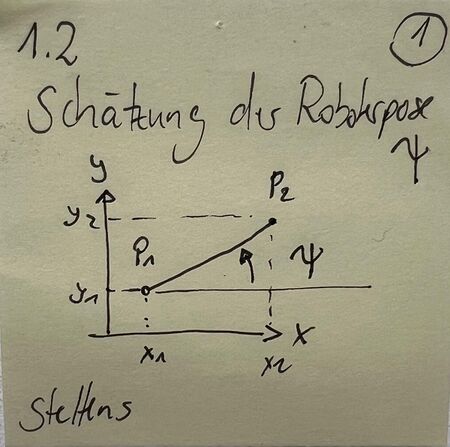 1.2
1
Schätzung der Roboterpose
ψ
y
y2
P2
P1
ψ
y1
x
x1
x2